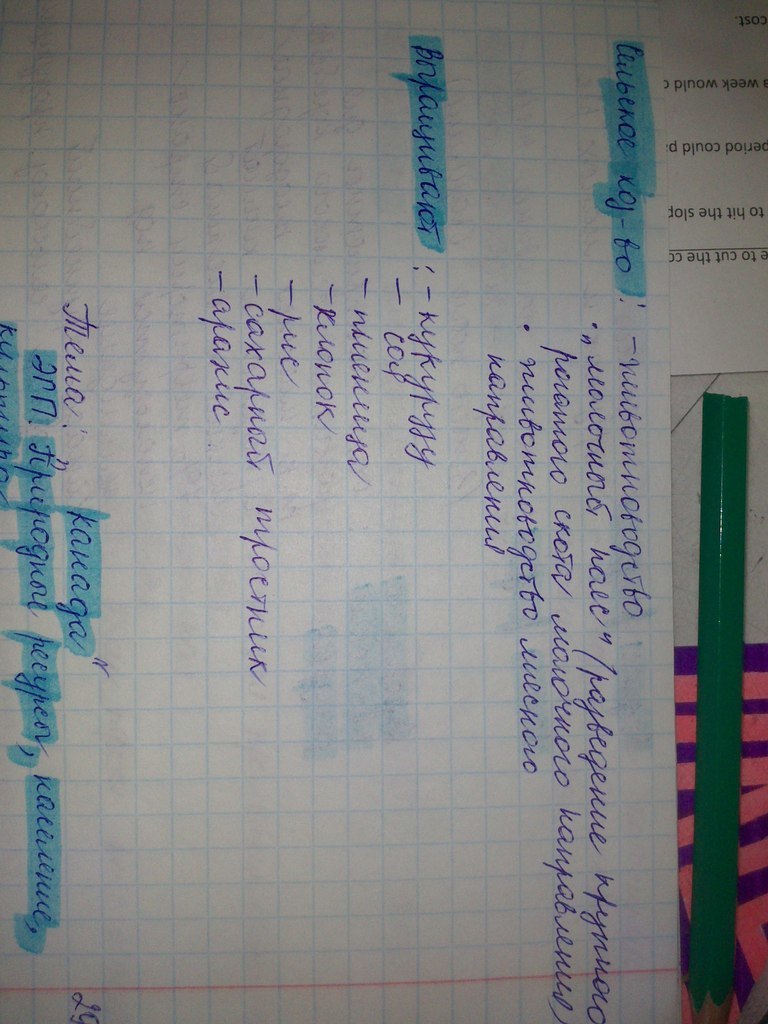 Сельское хоз-во: - животноводство
• "молочный пояс" (разведение крупного
рогатого скота молочного направления)
• животноводство мясного
направления
Выращивают: - кукурузу
- соя
- пшеница
- хлопок
- рис
- сахарный тростник
- арахис
Тема: "Канада"
ЭГП. Природные ресурсы, население,
культура
29
cost.
a week would
period could
to hit the
to cut the